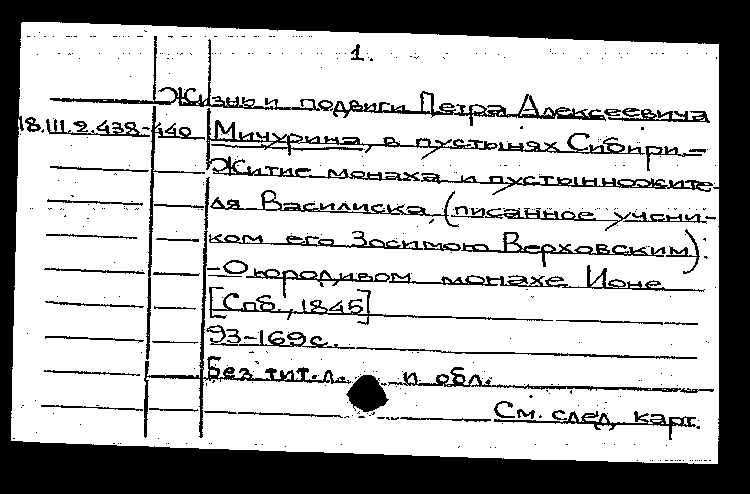 1.
Жизнь и подвиги Петра Алексеевича
18.III.2.438-440 Мичурина, в пустынях Сибири.-
Житие монаха и пустынножите-
ля Василиска, (писанное учени-
ком его Зосимою Верховским).
-О юродивом монахе Ионе
[Спб., 1845]
93-169с.
Без тит.л. и обл.
См. след. карт.